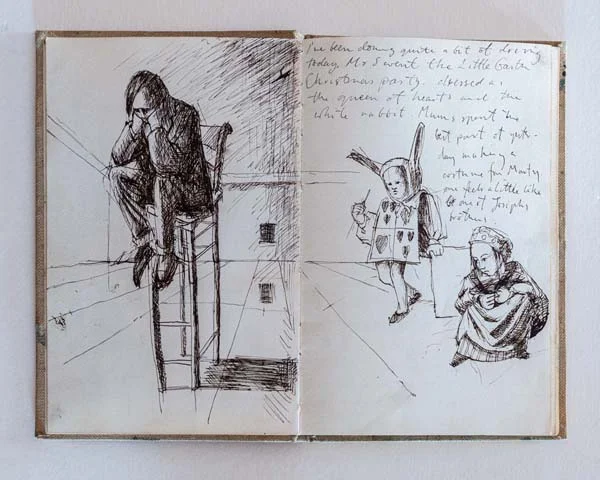 I've been doing quite a bit of driving
today. Mo & went the Little Garten
Christmas party. dressed as
the queen of hearts and the
white rabbit. Mum spent the
best part of yester-
day making a
costume for Marty
one feels a little like
one of Josephs
brothers.